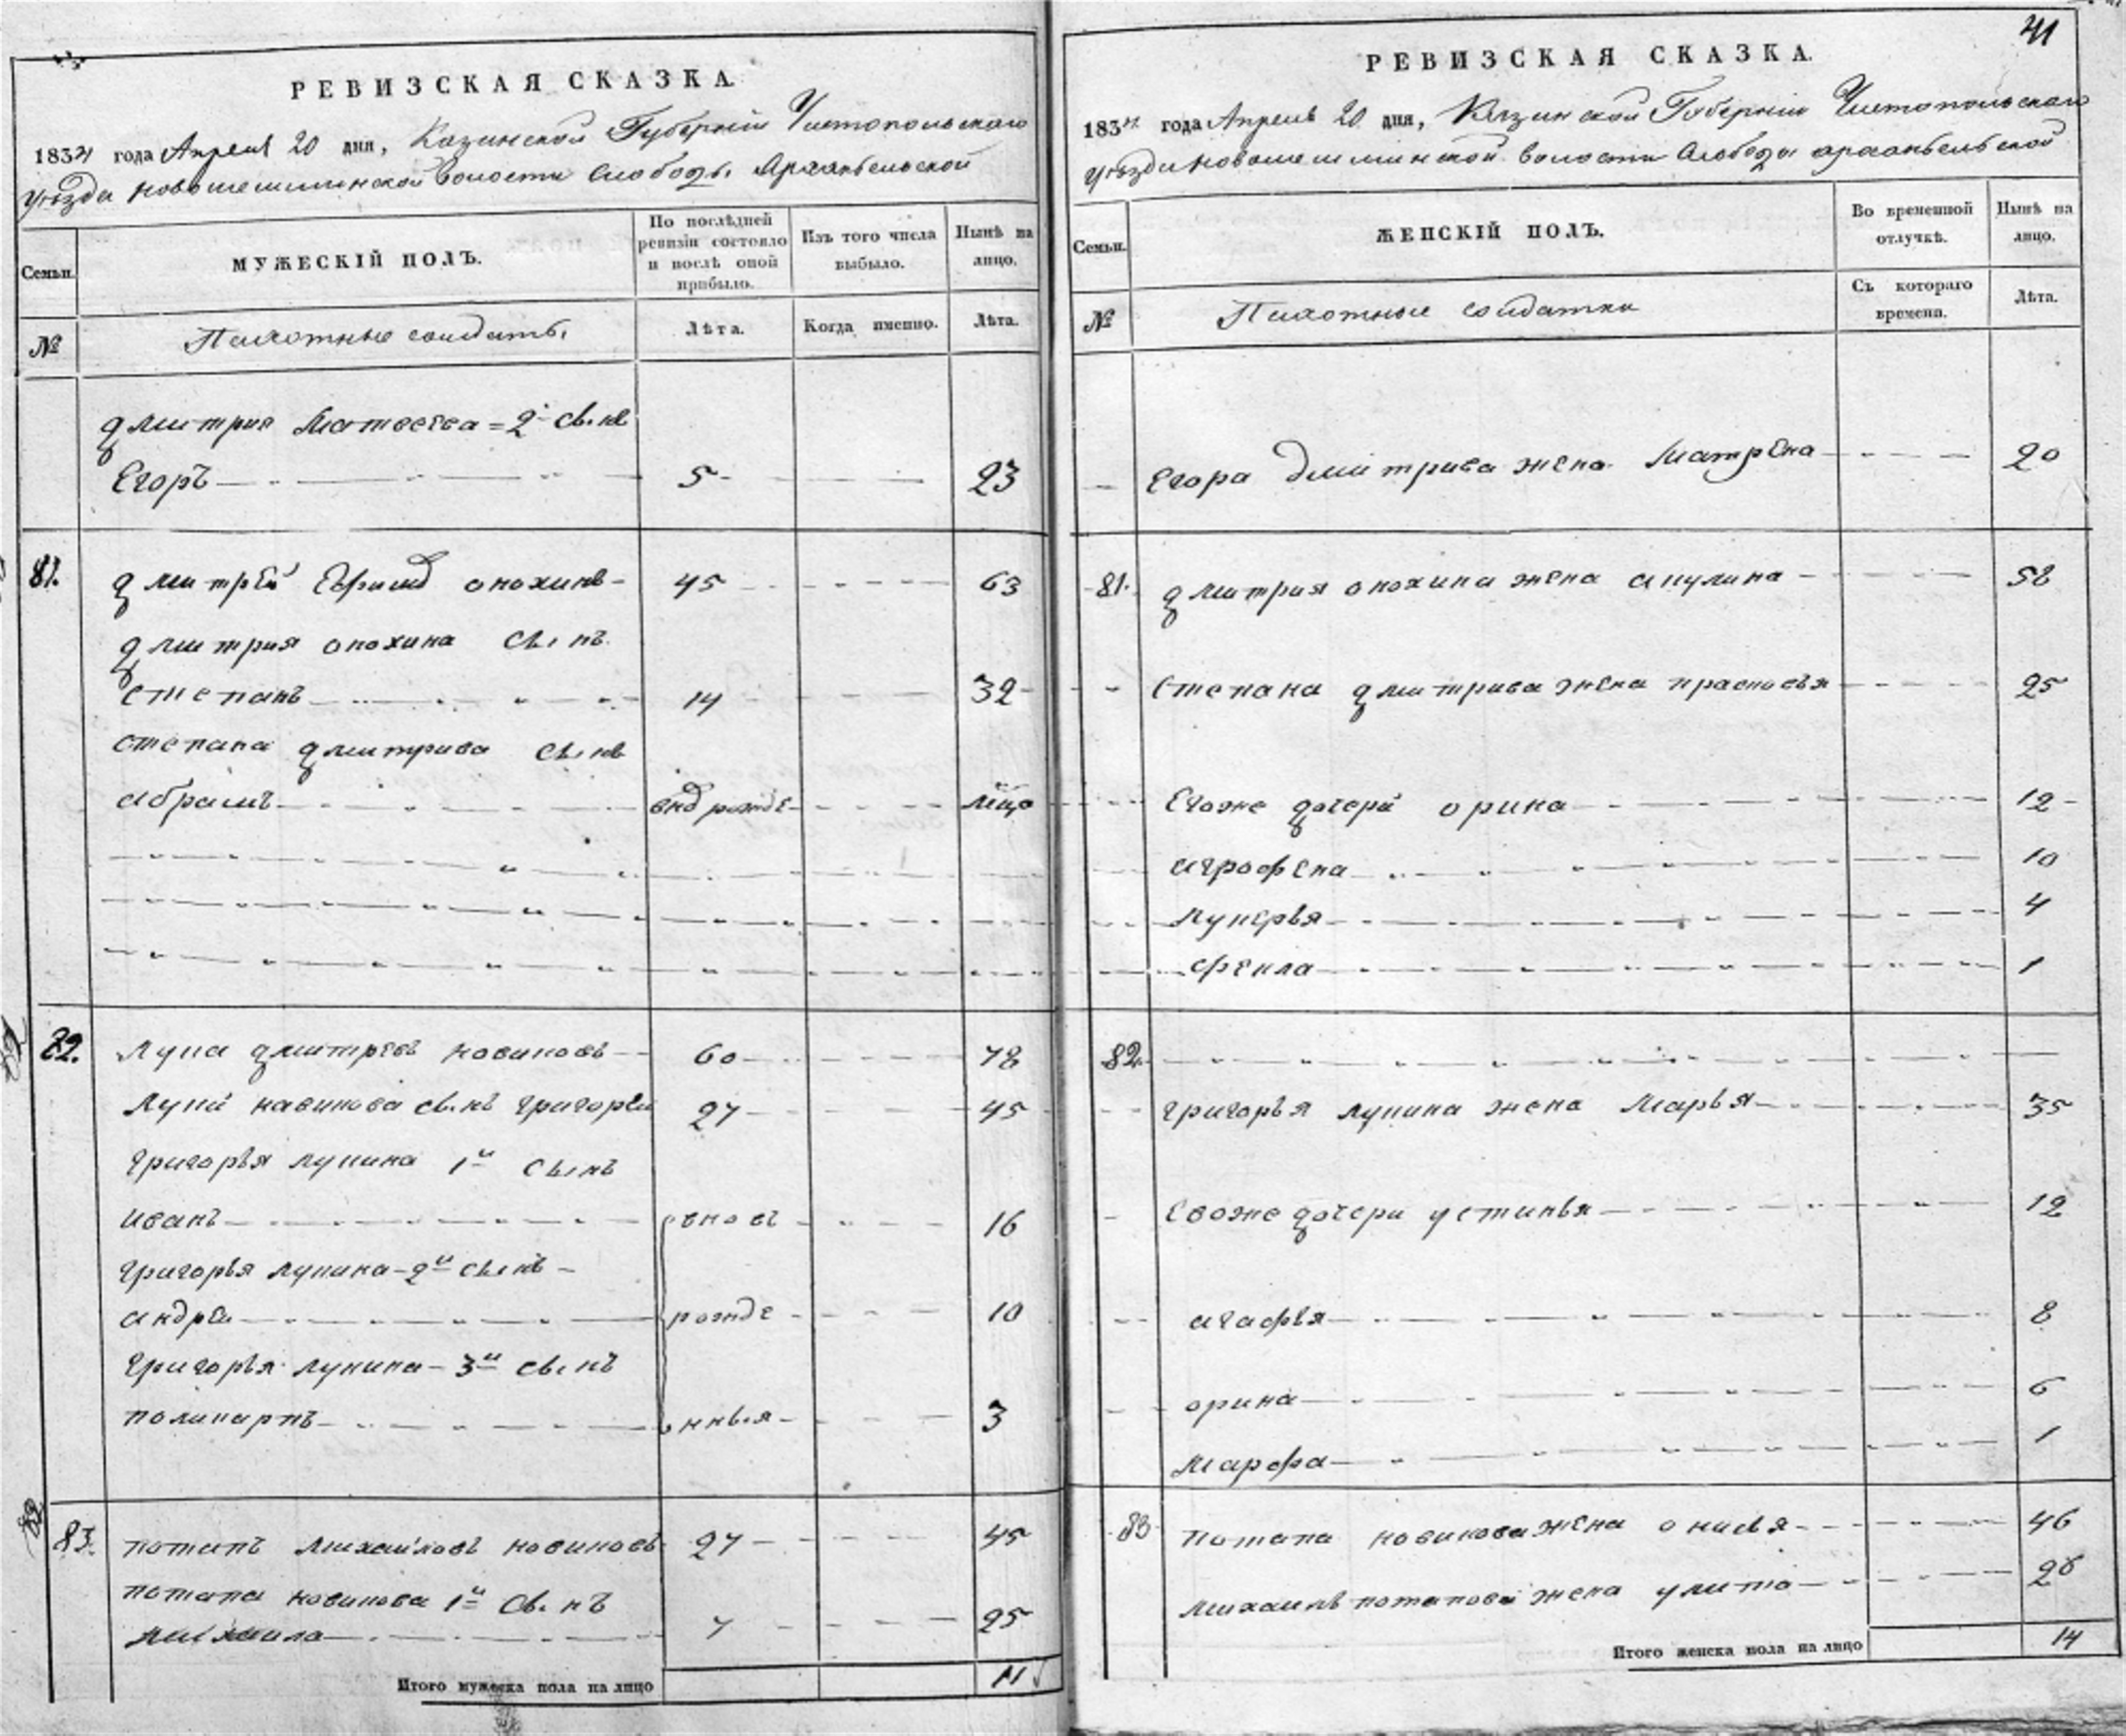 РЕВИЗСКАЯ СКАЗКА.
1834 года Апреля 20 дня, Казанской Губернии Чистопольскаго
уѣзда Новошешминской волости Слободы Архангельской
Семьи.
МУЖЕСКІЙ ПОЛЪ.
По послѣдней ревизіи состояло и послѣ оной прибыло.
Изъ того числа выбыло.
Нынѣ на лицо.
№
Пахотные солдаты.
Лѣта.
Когда именно.
Лѣта.
Дмитрия Матвеева = 2й сынъ
Егоръ 5 23
81. Дмитрей Ефимов онохинъ 45 63
Дмитрия онохина сынъ
степанъ 14 32
степана дмитрива сынъ
абрамъ внов рожде
82. Лупа дмитревъ новиковъ 60 78
Лупы навикова сынъ григореи 27 45
григорья лупина 1й сынъ
иванъ вновъ 16
григорья лупина 2й сынъ
андреи рожде 10
григорья лупина 3й сынъ
поликарпъ нныя 3
83. потапъ михайловъ новиковъ 27 45
потапа новикова 1й сынъ
михаила 7 25
Итого мужеска пола на лицо 11
41
РЕВИЗСКАЯ СКАЗКА.
1834 года Апреля 20 дня, Казанской Губернии Чистопольскаго
уѣзда новошешминской волости Слободы архангельской
Семьи.
ЖЕНСКІЙ ПОЛЪ.
Во временной отлучкѣ.
Нынѣ на лицо.
№
Пахотные солдатки
Съ котораго времени.
Лѣта.
Егора Дмитрива жена Матрена 20
81. дмитрия онохина жена акулина 58
степана дмитрива жена прасковья 25
Егоже дочери орина 12
аграфена 10
лукерья 4
фекла 1
82.
григорья лупина жена марья 35
Егоже дочери устинья 12
агафья 8
орина 6
марфа 1
83 потапа новикова жена 46
михаилы потапова жена улита 26
Итого женска пола на лицо 14